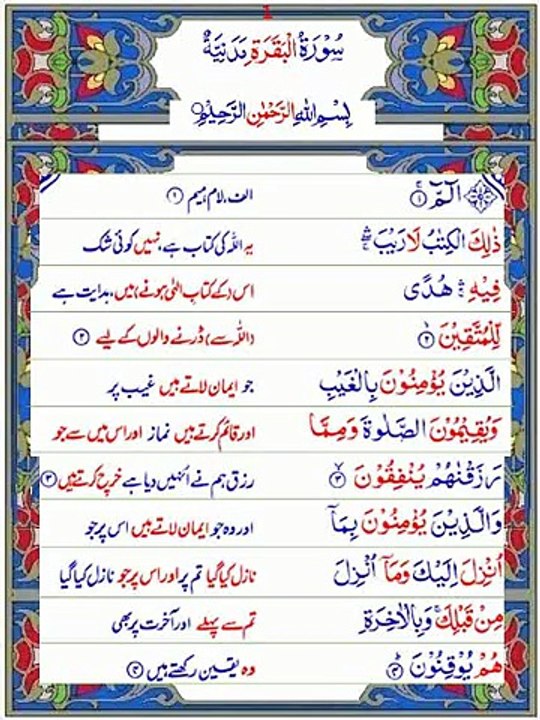 1
سُوْرَةُ الْبَقَرَةِ مَدَنِیَةٌ
بِسْمِ اللهِ الرَّحْمٰنِ الرَّحِیْمِ
الٓمّٓ ۱ الف، لام، میم ۱
ذٰلِكَ الْكِتٰبُ لَا رَیْبَ یہ اللہ کی کتاب ہے، نہیں کوئی شک
فِیْهِ هُدًی اس (کے کتابِ الٰہی ہونے) میں، ہدایت ہے
لِّلْمُتَّقِیْنَ ۲ (اللہ سے) ڈرنے والوں کے لیے ۲
الَّذِیْنَ یُؤْمِنُوْنَ بِالْغَیْبِ جو ایمان لاتے ہیں غیب پر
وَیُقِیْمُوْنَ الصَّلٰوةَ وَمِمَّا اور قائم کرتے ہیں نماز اور اس میں سے جو
رَزَقْنٰهُمْ یُنْفِقُوْنَ ۳ رزق ہم نے انہیں دیا ہے خرچ کرتے ہیں ۳
وَالَّذِیْنَ یُؤْمِنُوْنَ بِمَاۤ اور وہ جو ایمان لاتے ہیں اس پر جو
اُنْزِلَ اِلَیْكَ وَمَاۤ اُنْزِلَ نازل کیا گیا تم پر اور اس پر جو نازل کیا گیا
مِنْ قَبْلِكَ وَبِالْاٰخِرَةِ تم سے پہلے اور آخرت پر بھی
هُمْ یُوْقِنُوْنَ ۴ وہ یقین رکھتے ہیں ۴